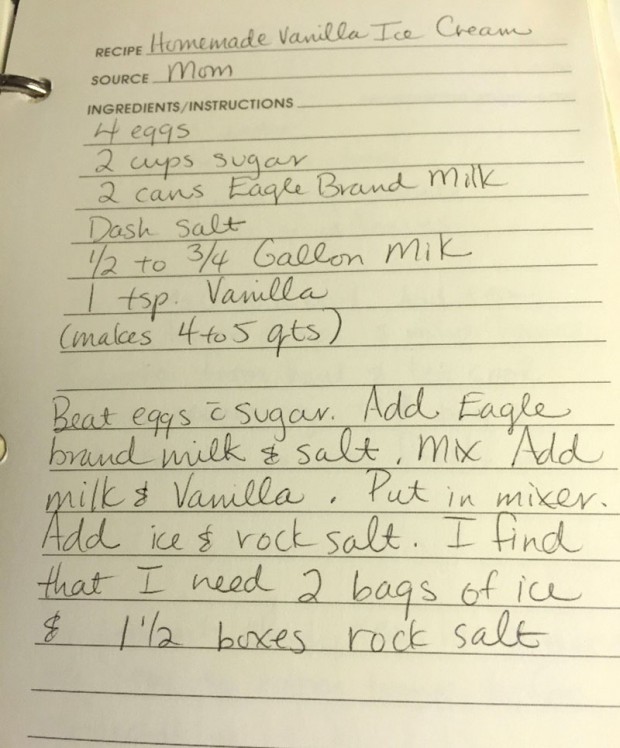 RECIPE Homemade Vanilla Ice Cream
SOURCE Mom
INGREDIENTS/INSTRUCTIONS
4 eggs
2 cups sugar
2 cans Eagle Brand Milk
Dash Salt
1/2 to 3/4 Gallon Mik
1 tsp. Vanilla
(makes 4 to 5 qts)
Beat eggs c̄ sugar. Add Eagle
brand milk & salt. Mix Add
milk & Vanilla. Put in mixer.
Add ice & rock salt. I find
that I need 2 bags of ice
& 1 1/2 boxes rock salt